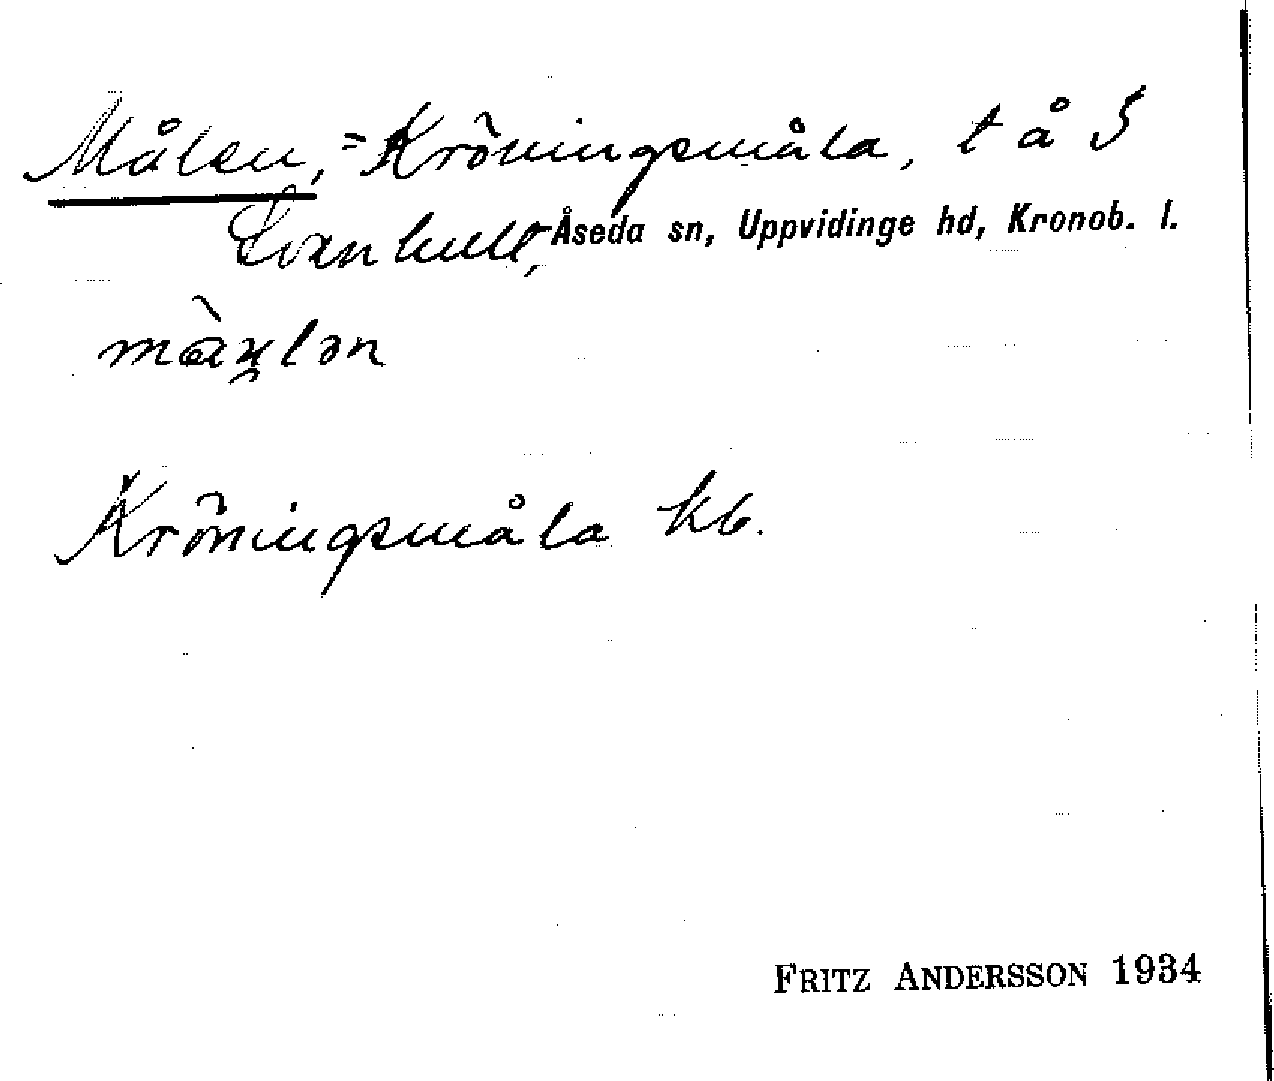 Målen, = Kröningsmåla, t å S
Svanhult, Åseda sn, Uppvidinge hd, Kronob. l.
Kröningsmåla kb.
FRITZ ANDERSSON 1934